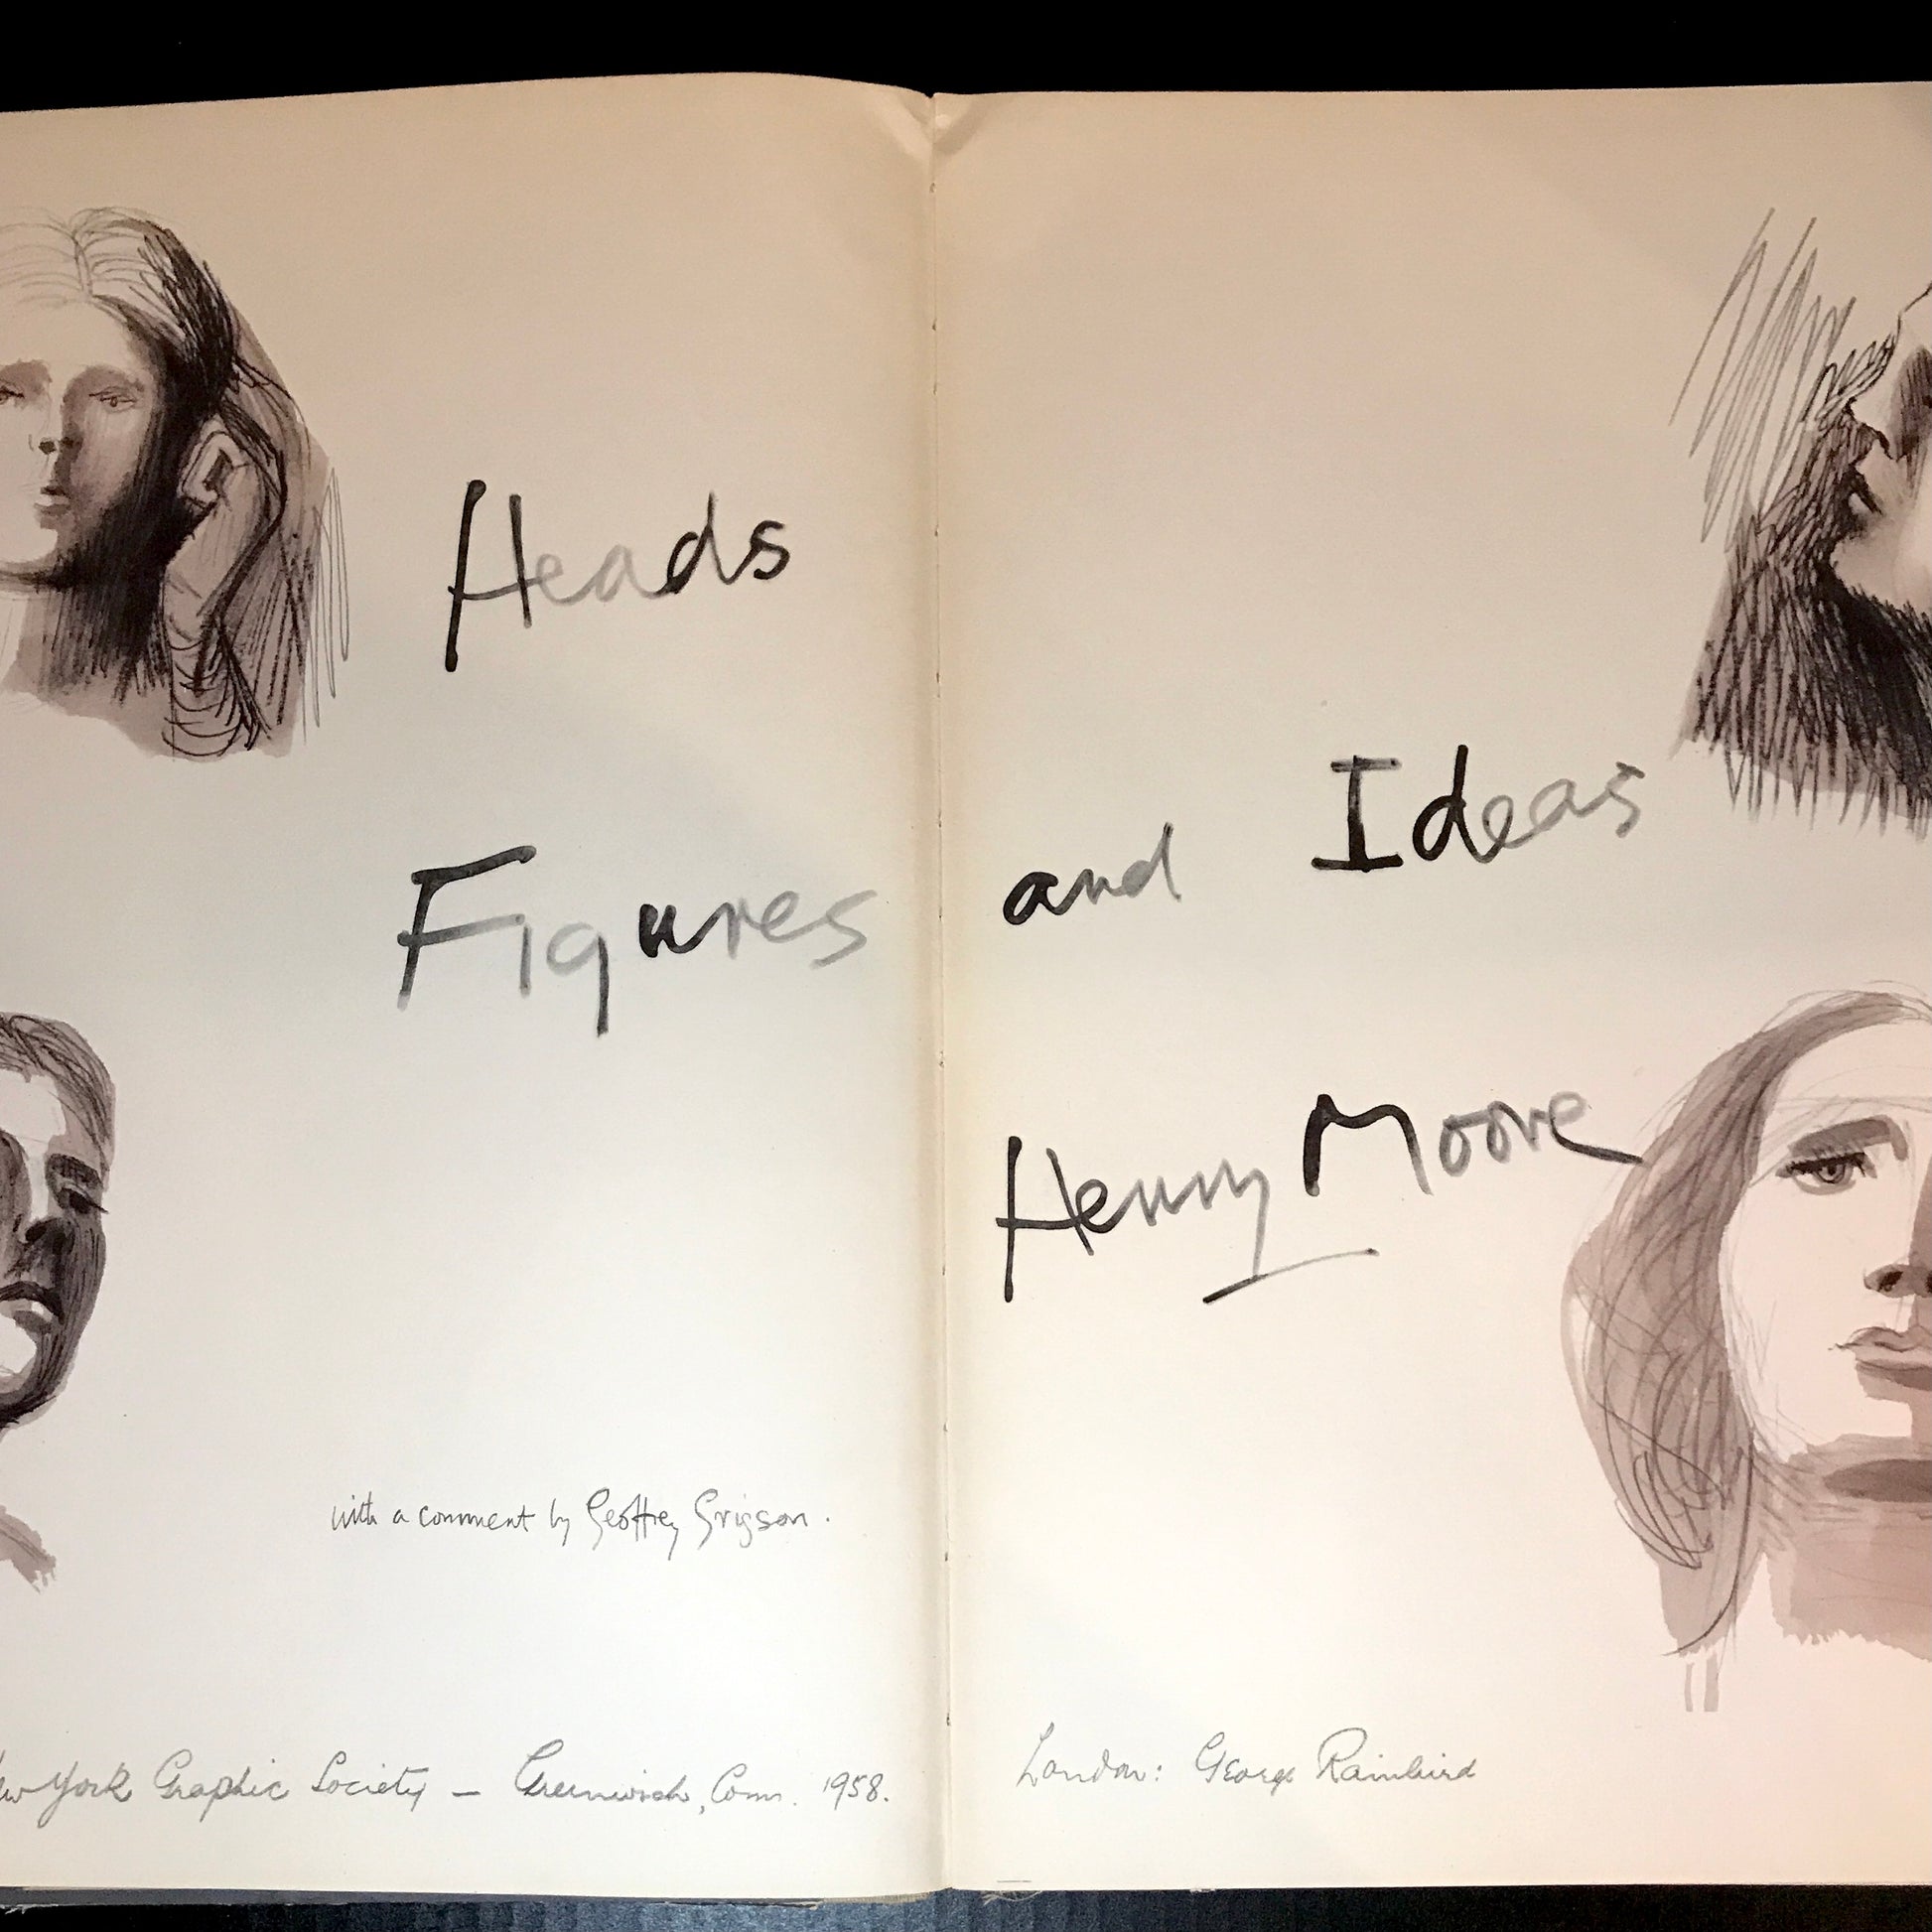 Heads
Figures and Ideas
Henry Moore
with a comment by Geoffrey Grigson.
York Graphic Society — Greenwich, Conn. 1958.
London: George Rainbird